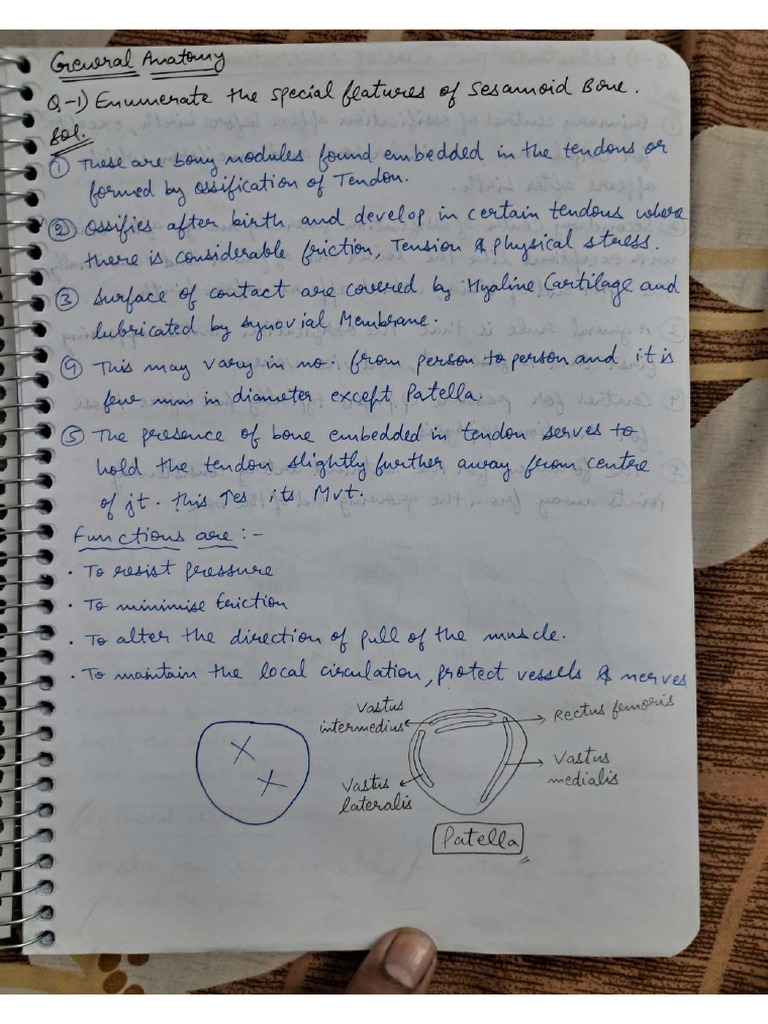 General Anatomy
Q-1) Enumerate the special features of Sesamoid Bone.
Sol.
① These are bony nodules found embedded in the tendons or
formed by ossification of Tendon.
② Ossifies after birth and develop in certain tendons where
there is considerable friction, Tension & physical stress.
③ Surface of contact are covered by Hyaline Cartilage and
lubricated by synovial Membrane.
④ This may vary in no. from person to person and it is
few mm in diameter except Patella.
⑤ The presence of bone embedded in tendon serves to
hold the tendon slightly further away from centre
of jt. this ↑es its Mvt.
Functions are :-
· To resist pressure
· To minimise friction
· To alter the direction of pull of the muscle.
· To maintain the local circulation, protect vessels & nerves
Vastus
intermedius
Rectus femoris
Vastus
medialis
Vastus
lateralis
Patella